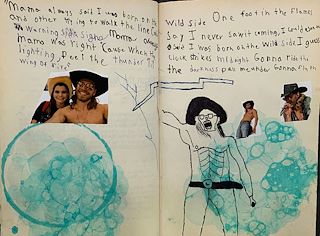 Mama always said I was born on th
and other trying to walk the line I was
Warning signs sighs Mama always
mama was right 'Cause when th
lighting, Feel the thunder till
wing of fire?
Wild side One foot in the flames
Say I never saw it coming, I could
said I was born on the Wild side I guess
clock strikes midnight Gonna ride the
the darkness pull me under Gonna fly on